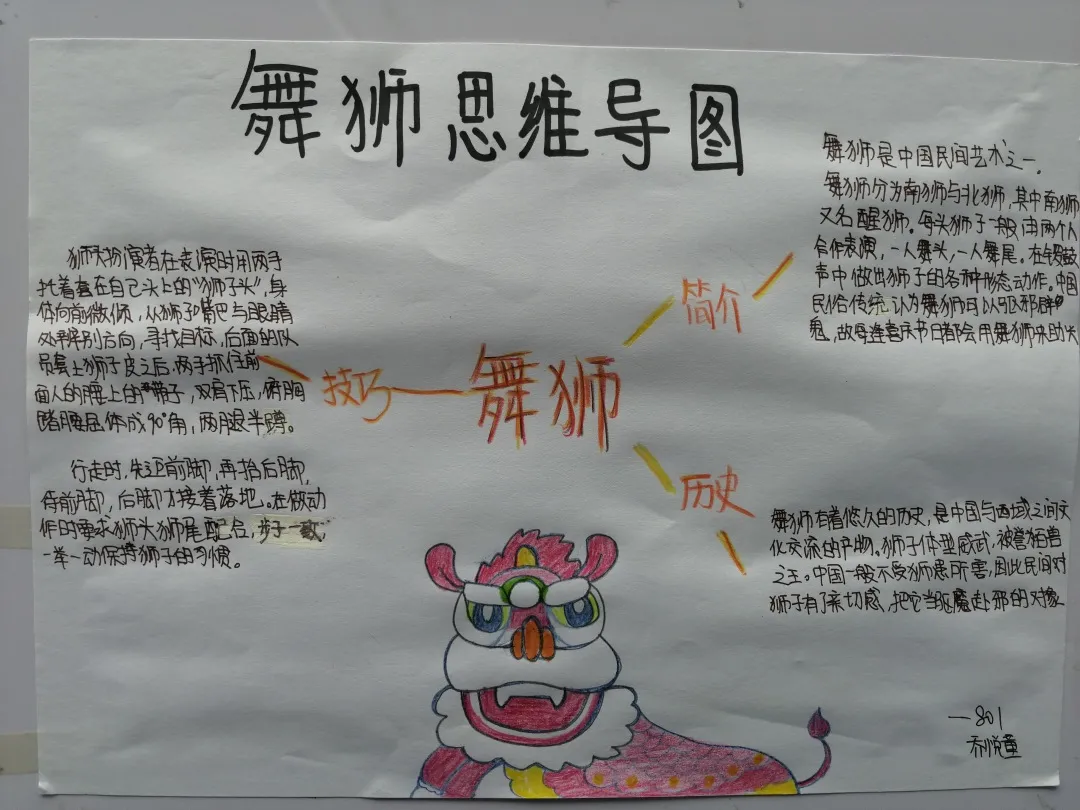 舞狮思维导图
舞狮是中国民间艺术之一。
舞狮分为南狮与北狮,其中南狮
又名醒狮。每头狮子一般由两个人
合作表演,一人舞头,一人舞尾。在锣鼓
声中做出狮子的各种形态动作。中国
民俗传统认为舞狮可以驱邪辟
鬼,故每逢喜庆节日都会用舞狮来助兴
简介
狮头扮演者在表演时用两手
托着套在自己头上的“狮子头”,身
体向前微倾,从狮子嘴巴与眼睛
处辨别方向,寻找目标,后面的队
员套上狮子皮之后,两手抓住前
面人的腰上的带子,双肩下压,俯胸
塌腰屈体成90°角,两腿半蹲。
技巧
舞狮
行走时,先迈前脚,再抬后脚,
待前脚,后脚才接着落地。在做动
作时要求狮头狮尾配合,步子一致,
一举一动保持狮子的习惯。
历史
舞狮有着悠久的历史,是中国与西域之间文
化交流的产物。狮子体型威武,被誉百兽
之王。中国一般不受狮患所害,因此民间对
狮子有了亲切感,把它当驱魔赴邪的对象
—801
乔悦童